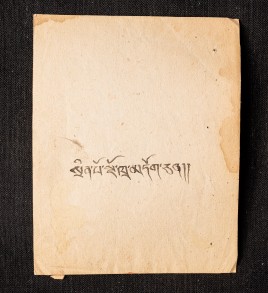 སྲིན་པོ་སྔོ་ཁྲ་མདོག་ཅན།།